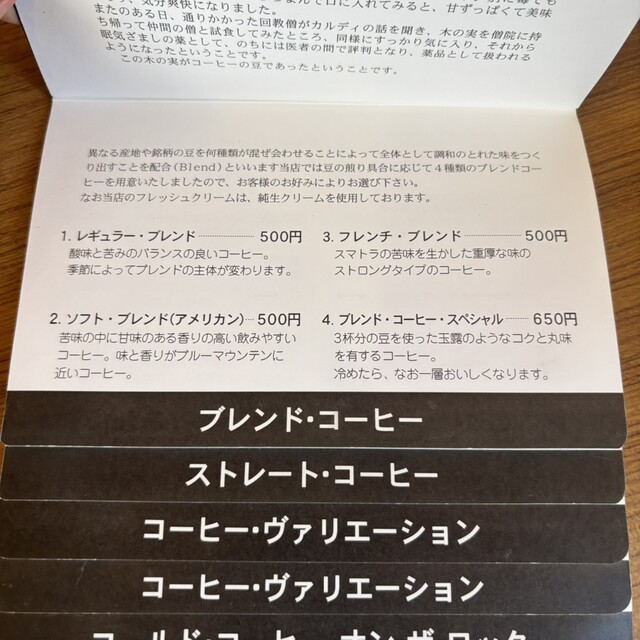 、気分爽快になりました。
またのある日、通りかかった回教僧がカルディの話を聞き、木の実を僧院に持
ち帰って仲間の僧と試食してみたところ、同様にすっかり気に入り、それから
眠気ざましの薬として、のちには医者の間で評判となり、薬品として扱われる
ようになったということです。
この木の実がコーヒーの豆であったということです。
異なる産地や銘柄の豆を何種類か混ぜ会わせることによって全体として調和のとれた味をつく
り出すことを配合(Blend)といいます当店では豆の煎り具合に応じて4種類のブレンドコー
ヒーを用意いたしましたので、お客様のお好みによりお選び下さい。
なお当店のフレッシュクリームは、純生クリームを使用しております。
1. レギュラー・ブレンド 500円
酸味と苦みのバランスの良いコーヒー。
季節によってブレンドの主体が変わります。
2. ソフト・ブレンド(アメリカン) 500円
苦味の中に甘味のある香りの高い飲みやすい
コーヒー。味と香りがブルーマウンテンに
近いコーヒー。
3. フレンチ・ブレンド 500円
スマトラの苦味を生かした重厚な味の
ストロングタイプのコーヒー。
4. ブレンド・コーヒー・スペシャル 650円
3杯分の豆を使った玉露のようなコクと丸味
を有するコーヒー。
冷めたら、なお一層おいしくなります。
ブレンド・コーヒー
ストレート・コーヒー
コーヒー・ヴァリエーション
コーヒー・ヴァリエーション
コールド・コーヒー オン ザ ロック